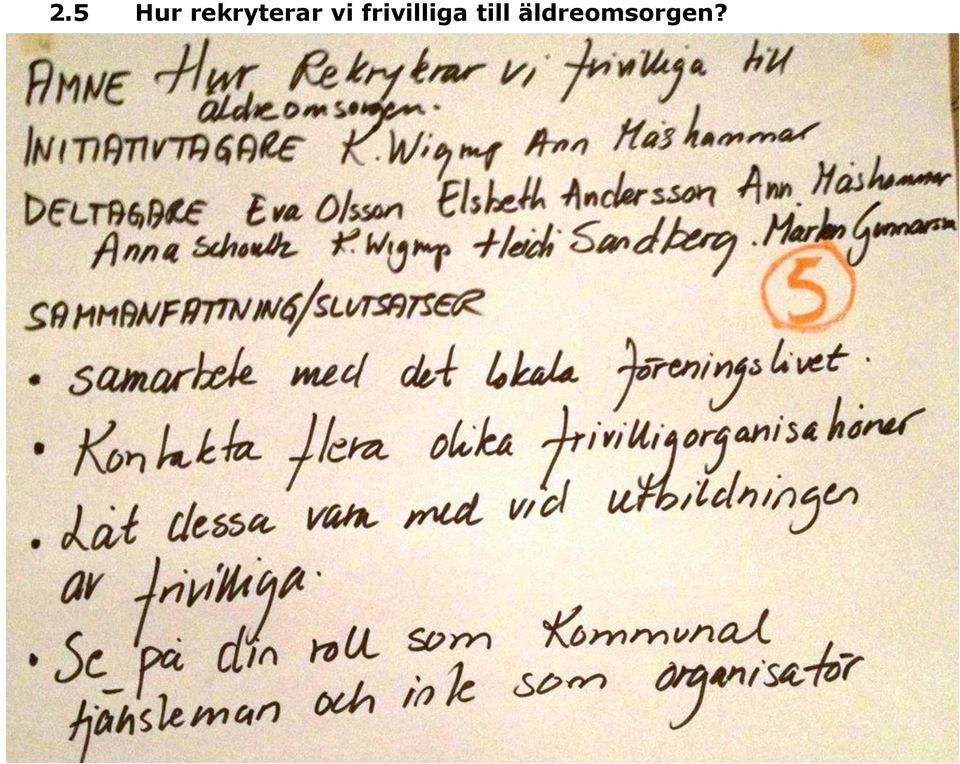 2.5 Hur rekryterar vi frivilliga till äldreomsorgen?
ÄMNE Hur Rekryterar vi frivilliga till
äldreomsorgen.
INITIATIVTAGARE K. Wigrup Ann Måshammar
DELTAGARE Eva Olsson Elsbeth Andersson Ann Måshammar
Anna Schoultz K. Wigrup Heidi Sandberg. Marlen Gunnarsson
5
SAMMANFATTNING/SLUTSATSER
• samarbete med det lokala föreningslivet.
• Kontakta flera olika frivilligorganisationer
• Låt dessa vara med vid utbildningen
av frivilliga.
• Se på din roll som Kommunal
tjänsteman och inte som organisatör